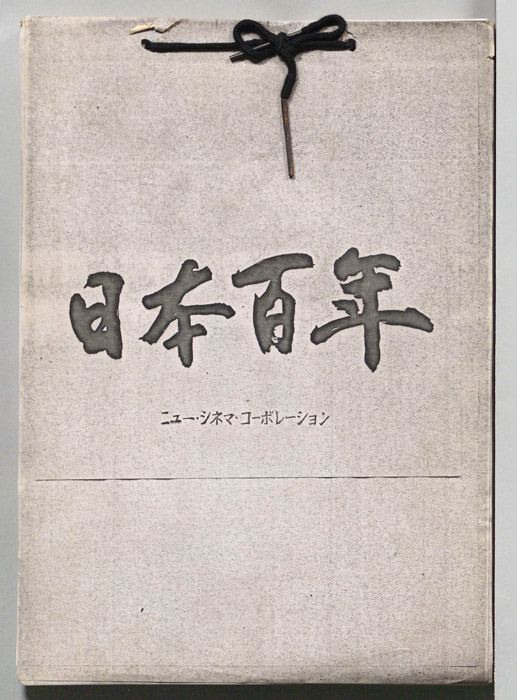 日本百年
ニュー・シネマ・コーポレーション